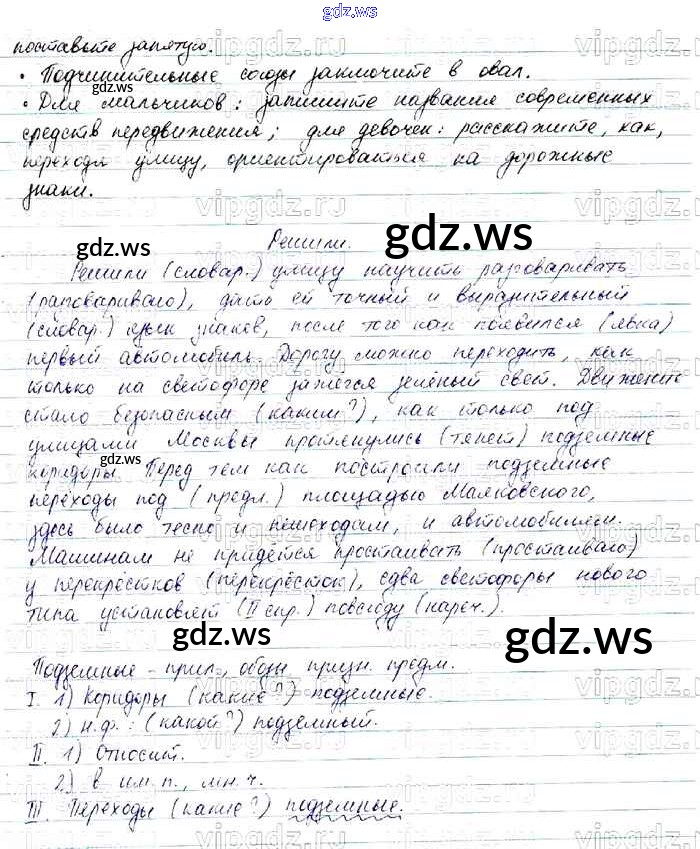 gdz.ws
поставьте запятую.
• Подчинительные союзы заключите в овал.
• Для мальчиков: запишите названия современных
средств передвижения; для девочек: расскажите, как,
переходя улицу, ориентироваться на дорожные
знаки.
Решили.
Решили (словар.) улицу научить разговаривать
(разговариваю), дать ей точный и выразительный
(словар.) язык знаков, после того как появился (явка)
первый автомобиль. Дорогу можно переходить, как
только на светофоре зажегся зелёный свет. Движение
стало безопасным (каким?), как только под
улицами Москвы протянулись (тянет) подземные
коридоры. Перед тем как построили подземные
переходы под (предл.) площадью Маяковского,
здесь было тесно и пешеходам, и автомобилям.
Машинам не придётся простаивать (простаиваю)
у перекрёстков (перекрёсток), едва светофоры нового
типа установят (II спр.) повсюду (нареч.).
Подземные – прил., обозн. призн. предм.
I. 1) Коридоры (какие?) подземные.
2) н.ф.: (какой?) подземный.
II. 1) Относит.
2) в им.п., мн.ч.
III. Переходы (какие?) подземные.